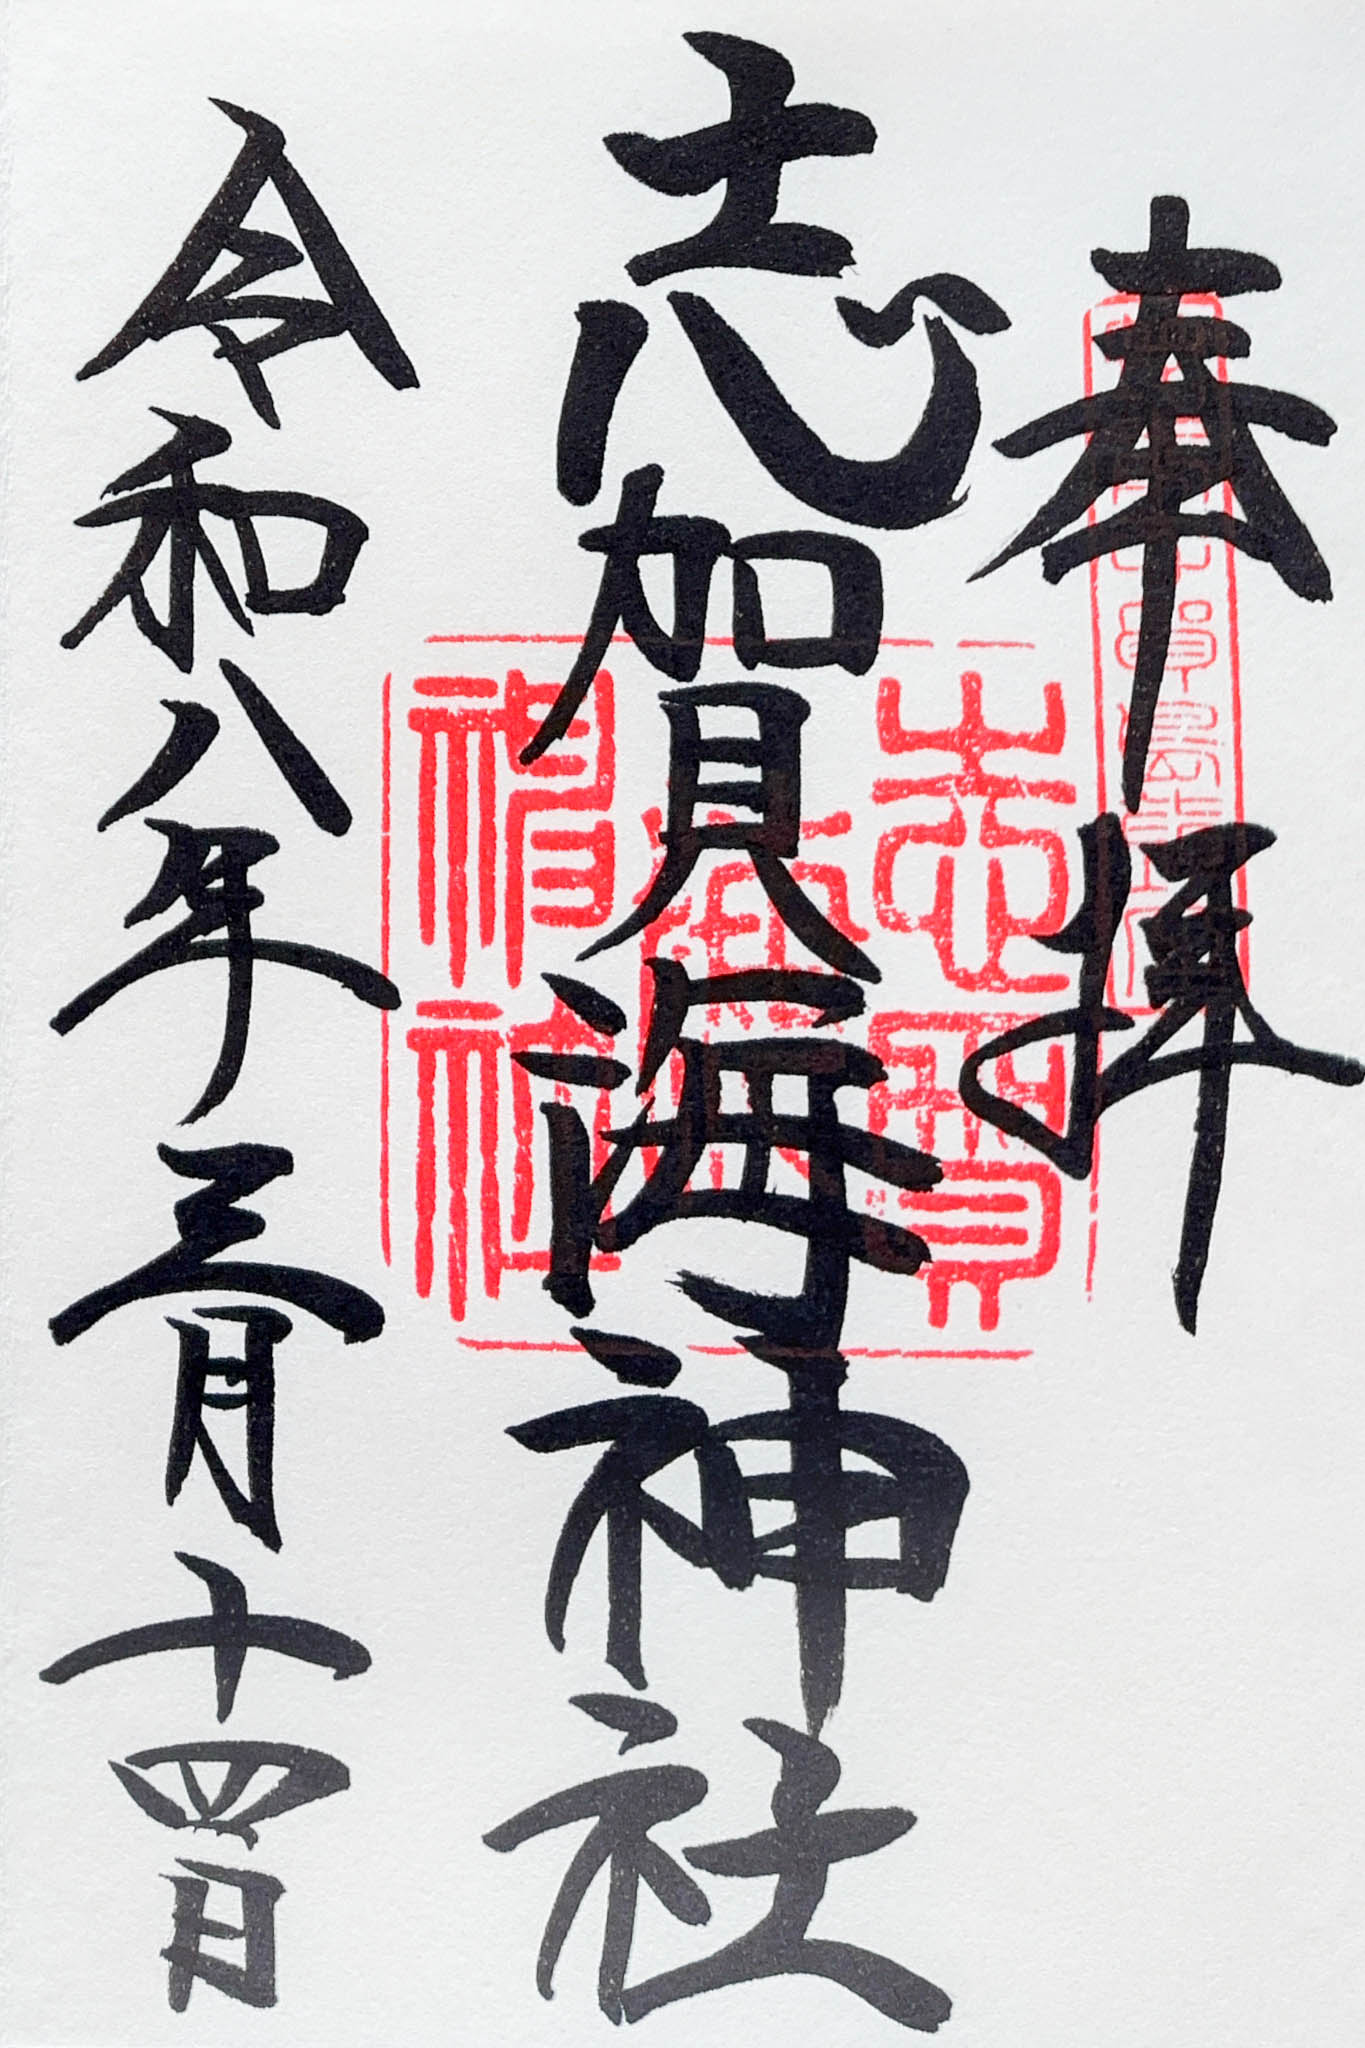 奉拝
志賀海神社
志賀海神社
令和八年三月十四日